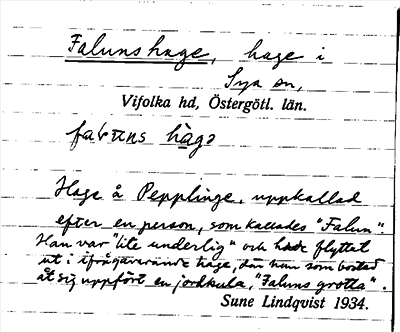 Faluns hage, hage i
Sya sn,
Vifolka hd, Östergötl. län.
Hage å Pepplinge, uppkallad
efter en person, som kallades "Falun".
Han var "lite underlig" och hade flyttat
ut i ifrågavarande hage, där han som bostad
åt sig uppfört en jordkula, "Faluns grotta".
Sune Lindqvist 1934.